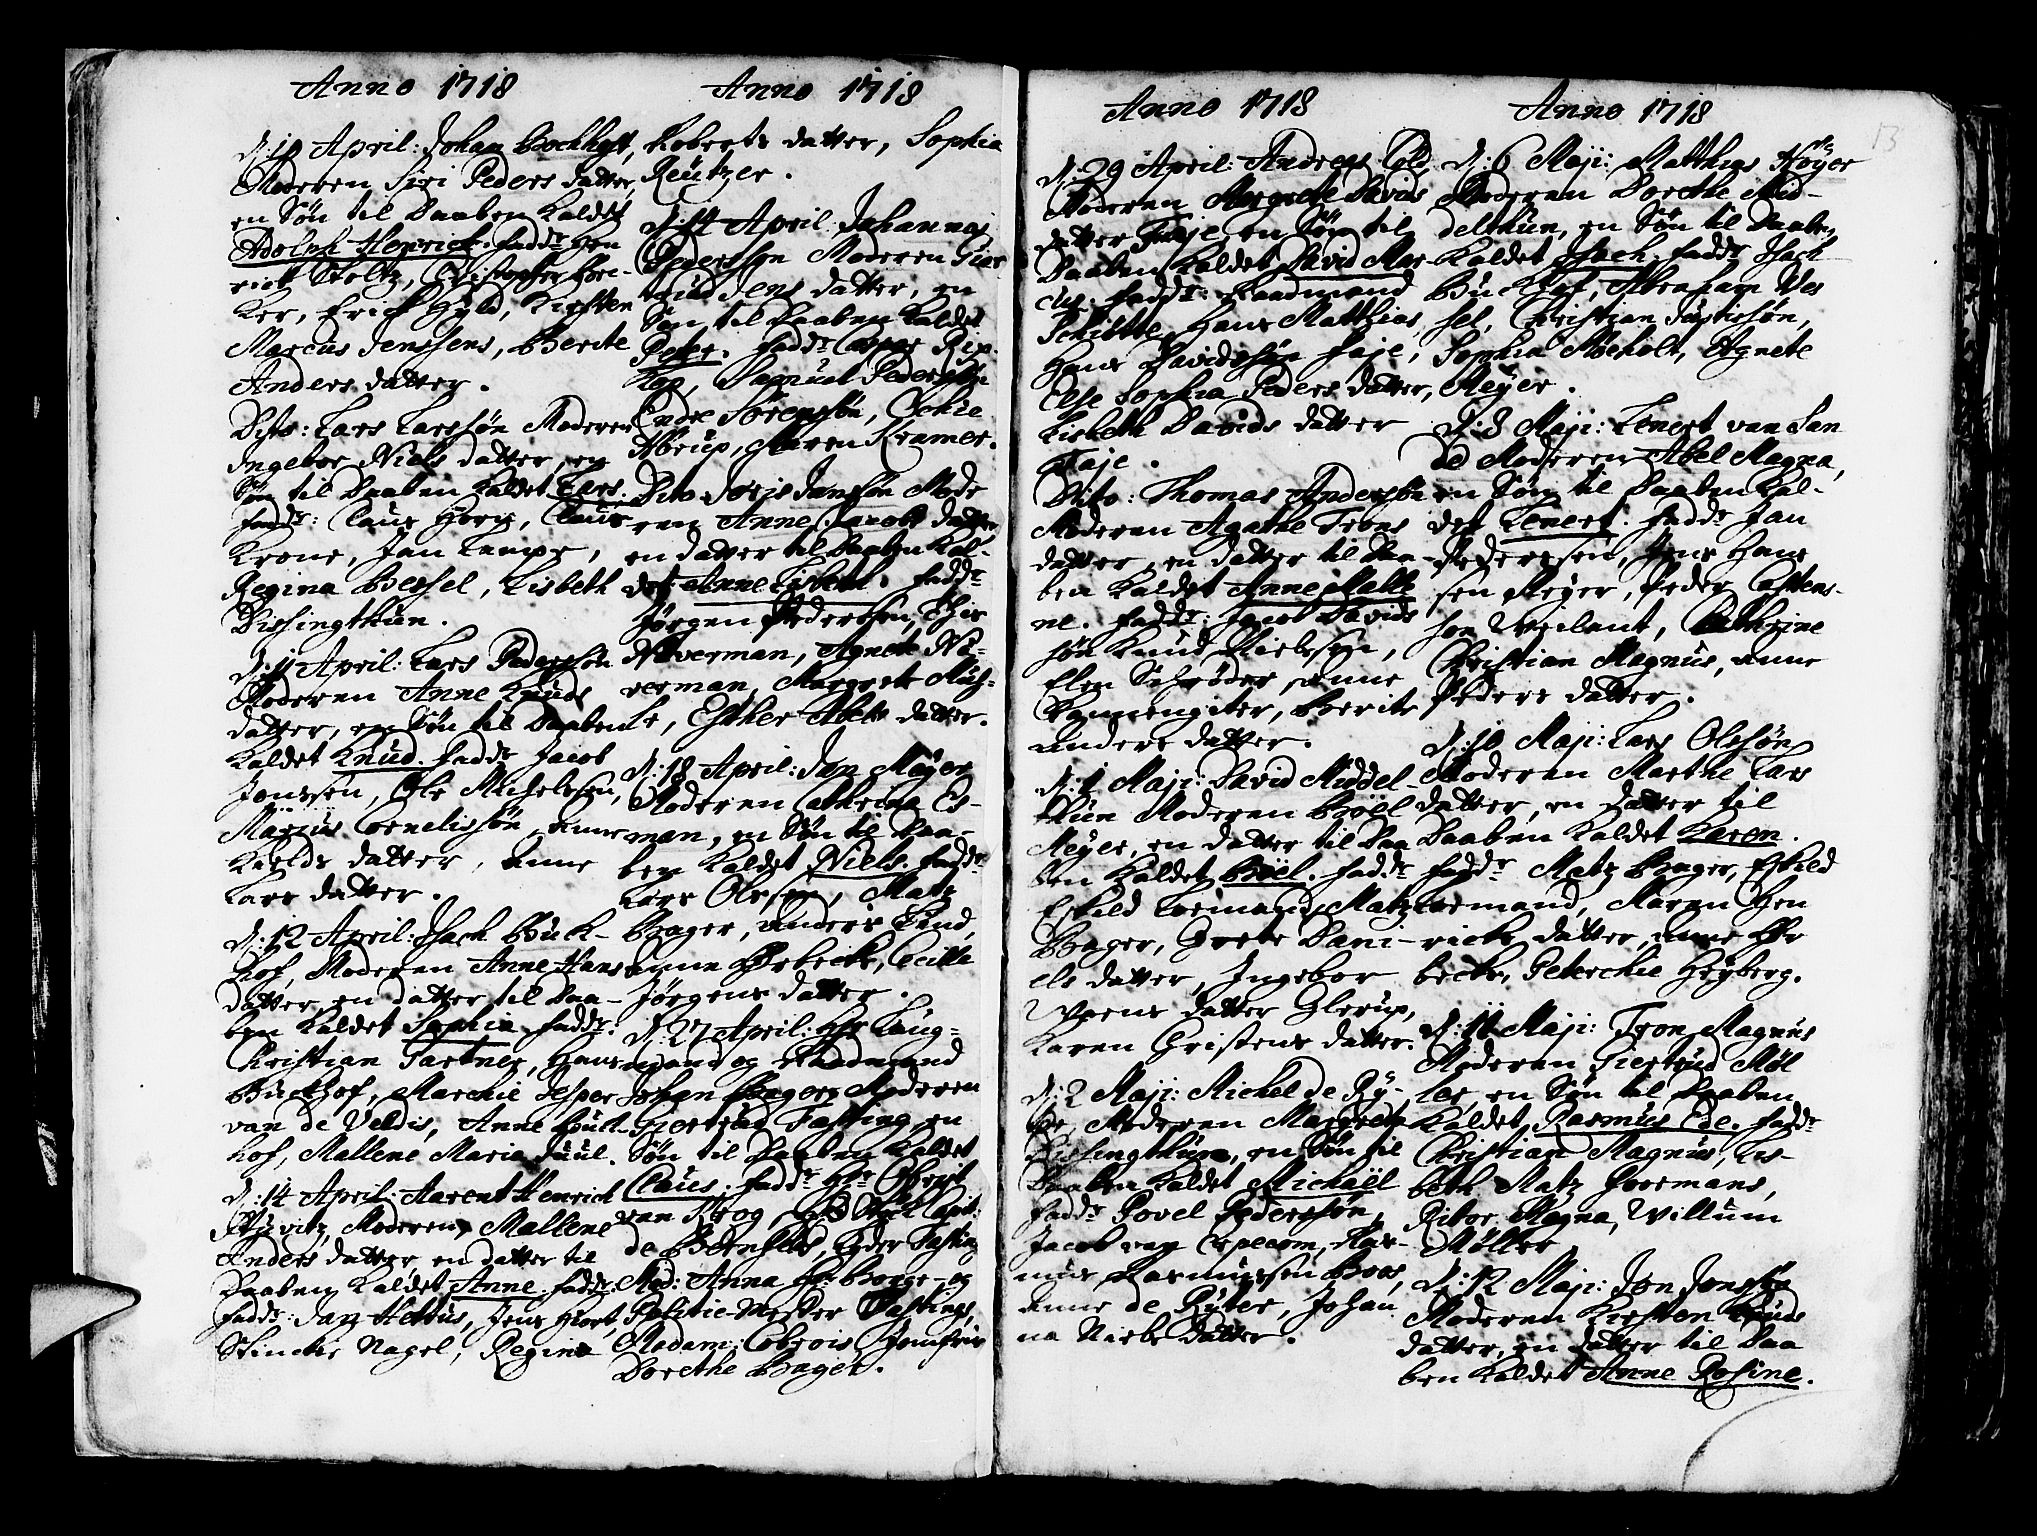 Anno 1718
d: 10 April: Johan Bockholt,
Moderen Siri Peders datter,
en Søn til Daaben Kaldet
Adolph Henrich. faddr Hen
rich Stoltz, Christopher Bre-
ker, Erich Gyld, Kirsten
Marcus Jenssens, Berite
Anders datter.
Dito: Lars Larssøn Moderen
Ingebor Niels datter, en
Søn til Daaben Kaldet Lars.
faddr: Claus Horn, Claus
Krone, Jan Lampe,
Regina Bessel, Lisbeth
Dissingthun.
d: 11 April: Lars Pederssøn
Moderen Anne Knuds
datter, en Søn til Daaben
Kaldet Knud. faddr Jacob
Jonssen, Ole Michelssen,
Marcus Cornelissøn, Anne
Kields datter, Anne
Lars datter.
d: 12 April: Isach Buck-
hof, Moderen Anne Hans
datter, en datter til Daa-
ben Kaldet Sophia. faddr:
Christian Gartner, Hans
Buckhof, Marchie Jesper
van de Veldis, Anne Buck-
hof, Mallene Maria Juul.
d: 14 April: Aarent Henrich
Moderen Mallene
Anders datter, en datter til
Daaben Kaldet Anne. faddr.
faddr: Jan Hettus, Jens Hiort,
Stincke Nagel, Regina
Anno 1718
Roberts datter, Sophia
Reutzer.
d: 14 April: Johannes
Pederssøn Moderen Gier
trud Jens datter, en
Søn til Daaben Kaldet
Peter. faddr Casper Rip
Kop, Samuel Pederssøn
Endre Sørenssøn, Ochie
Abrup, Maren Kramer.
Dito Joris Janssøn Mode
ren Anne Jacobs datter
en datter til Daaben Kal-
det Anne Lisbeth. faddr
Jørgen Pederssen,
Naverman, Agnete Na-
verman, Margrete Mus-
se, Esther Abels datter.
d: 18 April: Jan Meyer
Moderen Cathrina Es-
man, en Søn til Daa-
ben Kaldet Niels. faddr
Lars Olssen, Matz
Bager, Anders Lund,
Anne Ørbeck, Cecille
Jørgens datter.
d: 27 April: Hr Laug-
mand og Raadmand
Johan Bagers Moderen
Giertrud Fasting en
Søn til Daaben Kaldet
Claus. faddr Hr Oberst
van Krog, Capit:
de Bornfelt, Peder Fasting
Mad: Anna Hr: Borge- og
Politie-Mester Fastings,
Madam: Cobrois Jomfru
Dorethe Bager.
Anno 1718
d: 29 April: Andreas Told,
Moderen Margrete Davids
datter Faje, en Søn til
Daaben Kaldet David Mar-
cus. faddr: Raadmand
Schøtte, Hans Matthias,
Hans Davidssøn Faje,
Else Sophia Peders datter,
Lisbeth Davids datter
Faje.
Dito: Thomas Anderssøn
Moderen Agathe Trons
datter, en datter til Daa-
ben Kaldet Anne Malle
ne. faddr: Jacob Davids
søn Knud Nielssen,
Elen Schrøder, Anne
Berite
Anders datter.
d: 1 Maji: David Middel-
thun Moderen Böel
Meyer, en datter til Daa
ben Kaldet Böel. faddr
Eskild Loemand, Matz
Bager, Grete Dani-
els datter, Ingebor
Woens datter Glerup,
Karen Christens datter.
d: 2 Maji: Michel de Ry-
ter, Moderen Margrete
Dissingthun, en Søn til
Daaben Kaldet Michaël
faddr Povel Pederssøn,
Jacob van Especom, Ras-
mus Rasmussen Boos,
Anne de Ryter, Johan
na Niels datter.
Anno 1718
13
d: 6 Maji: Matthias Høyer
Moderen Dorethe Mid-
delthun, en Søn til Daaben,
Kaldet Isach. faddr Isach
Buckhof, Abraham Wes
sel, Christian Justissøn,
Sophia Mocholt, Agnete
Meyer.
d: 8 Maji: Lenert van San
de Moderen Abel Magna,
en Søn til Daaben Kal-
det Lenert. faddr Jan
Pederssen, Jens Hans
sen Meyer, Peder Castens-
søn Weilant, Cathrine
Christian Magnus, Anne
Peders datter.
d: 10 Maji: Lars Olssøn
Moderen Marthe Lars
datter, en datter til
Daaben Kaldet Karen.
faddr Matz Bager, Eskild
Loemand, Maren Hen
richs datter, Anne Ør
beck, Peterchie Heyberg.
d: 11 Maji: Tron Magnus
Moderen Giertrud Møl
ler, en Søn til Daaben
Kaldet, Rasmus Ede. faddr
Christian Magnus, Lis-
beth Matz Goormans,
Ritor Magna, Willum
Møller
d: 12 Maji: Jon Jonssøn
Moderen Kirsten Knuds
datter, en datter til Daa
ben Kaldet Anne Rosine.